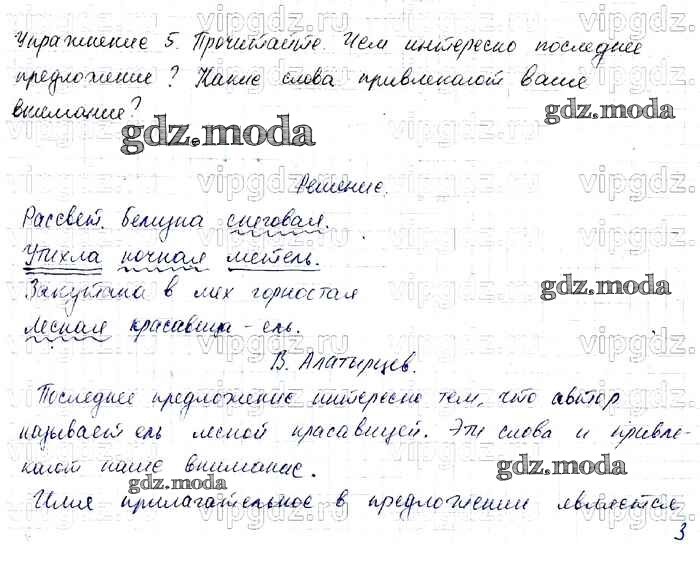 Упражнение 5. Прочитайте. Чем интересно последнее
предложение? Какие слова привлекают ваше
внимание?
gdz.moda
gdz.moda
Решение.
Рассвет. Белизна снеговая.
Утихла ночная метель.
Закутана в мех горностая
gdz.moda
Лесная красавица - ель.
В. Алатырцев.
Последнее предложение интересно тем, что автор
называет ель лесной красавицей. Эти слова и привле-
кают наше внимание.
gdz.moda
gdz.moda
Имя прилагательное в предложении является
3